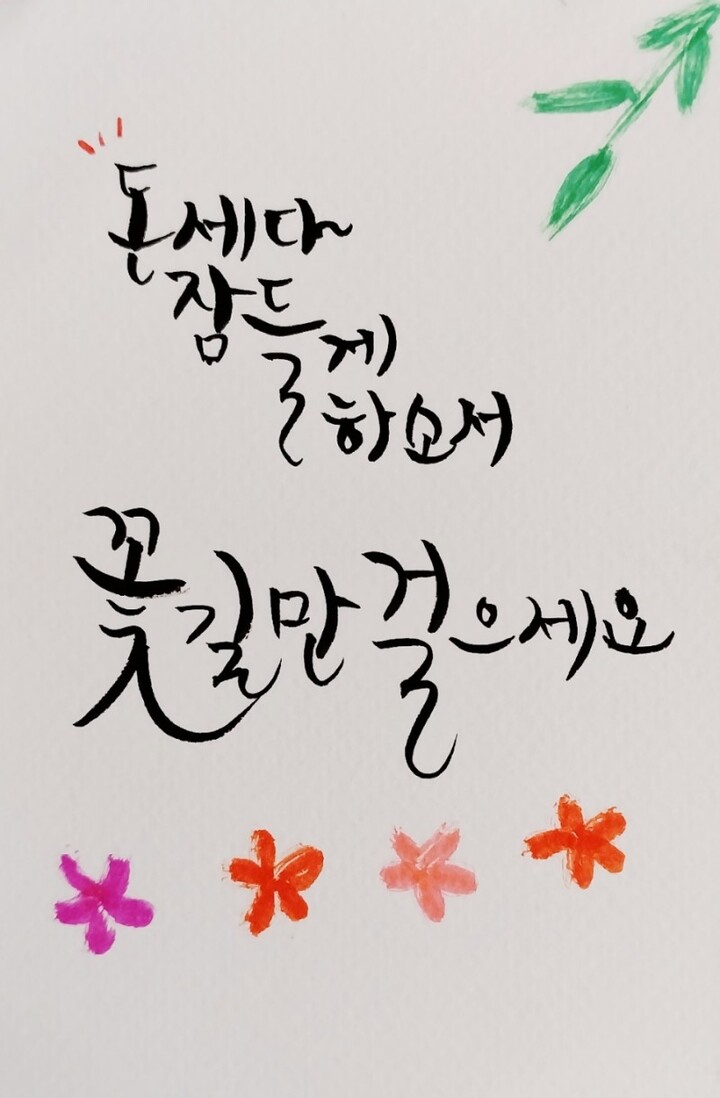 돈세다~
잠들게
하소서
꽃길만 걸으세요